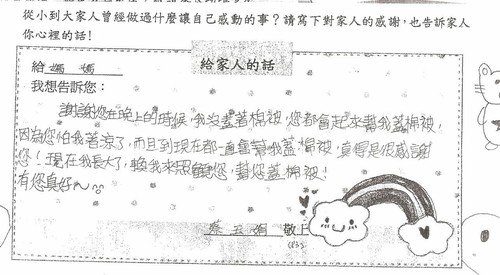 從小到大家人曾經做過什麼讓自己感動的事？請寫下對家人的感謝，也告訴家人
你心裡的話！
給家人的話
給 媽媽
我想告訴您：
謝謝您在晚上的時候，我沒蓋著棉被，您都會起來幫我蓋棉被，
因為您怕我著涼了，而且到現在都一直會幫我蓋棉被，真得是很感謝
您！現在我長大了，換我來照顧您，幫您蓋棉被！
有您真好～
蔡 娟 敬上